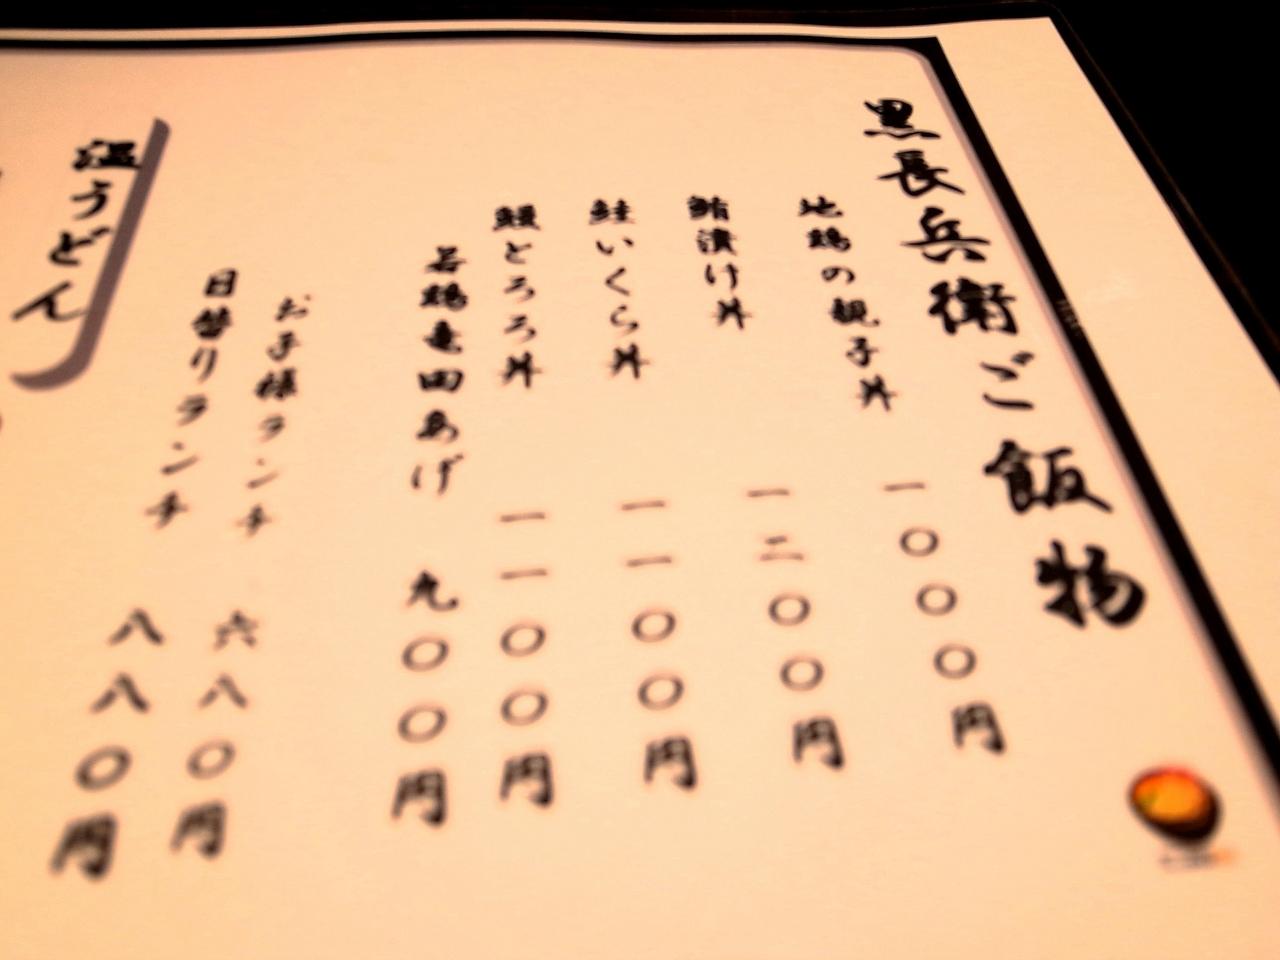 黒長兵衛ご飯物
地鶏の親子丼 一〇〇〇円
鮪漬け丼 一二〇〇円
鮭いくら丼 一一〇〇円
鰻とろろ丼 一一〇〇円
若鶏竜田あげ 九〇〇円
お子様ランチ 六八〇円
日替りランチ 八八〇円
温うどん